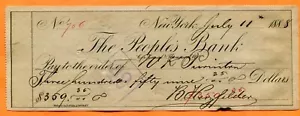 No 900 New York July 11 1888
The People's Bank
Pay to the order of W R Swinton
Three hundred fifty nine 35/100 Dollars
$359.35/100